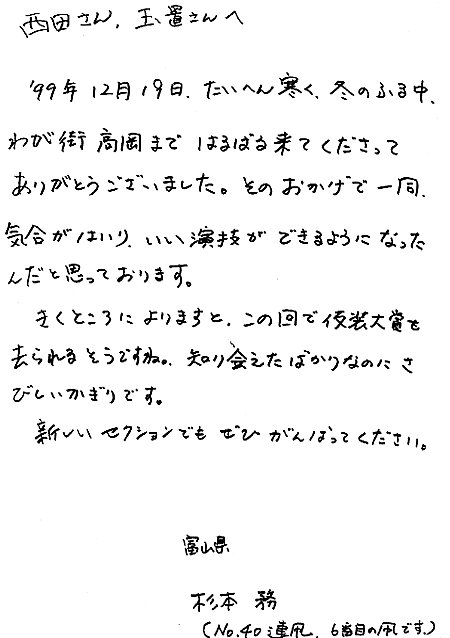 西田さん、玉置さんへ
'99年12月19日、たいへん寒く、冬のふる中、
わが街 高岡まで はるばる来てくださって
ありがとうございました。そのおかげで一同、
気合がはいり、いい演技ができるようになった
んだと思っております。
きくところによりますと、この回で仮装大賞を
去られるそうですね。知り会えたばかりなのにさ
びしいかぎりです。
新しいセクションでも ぜひ がんばってください。
富山県
杉本 務
(No.40 連凧、6番目の凧です。)